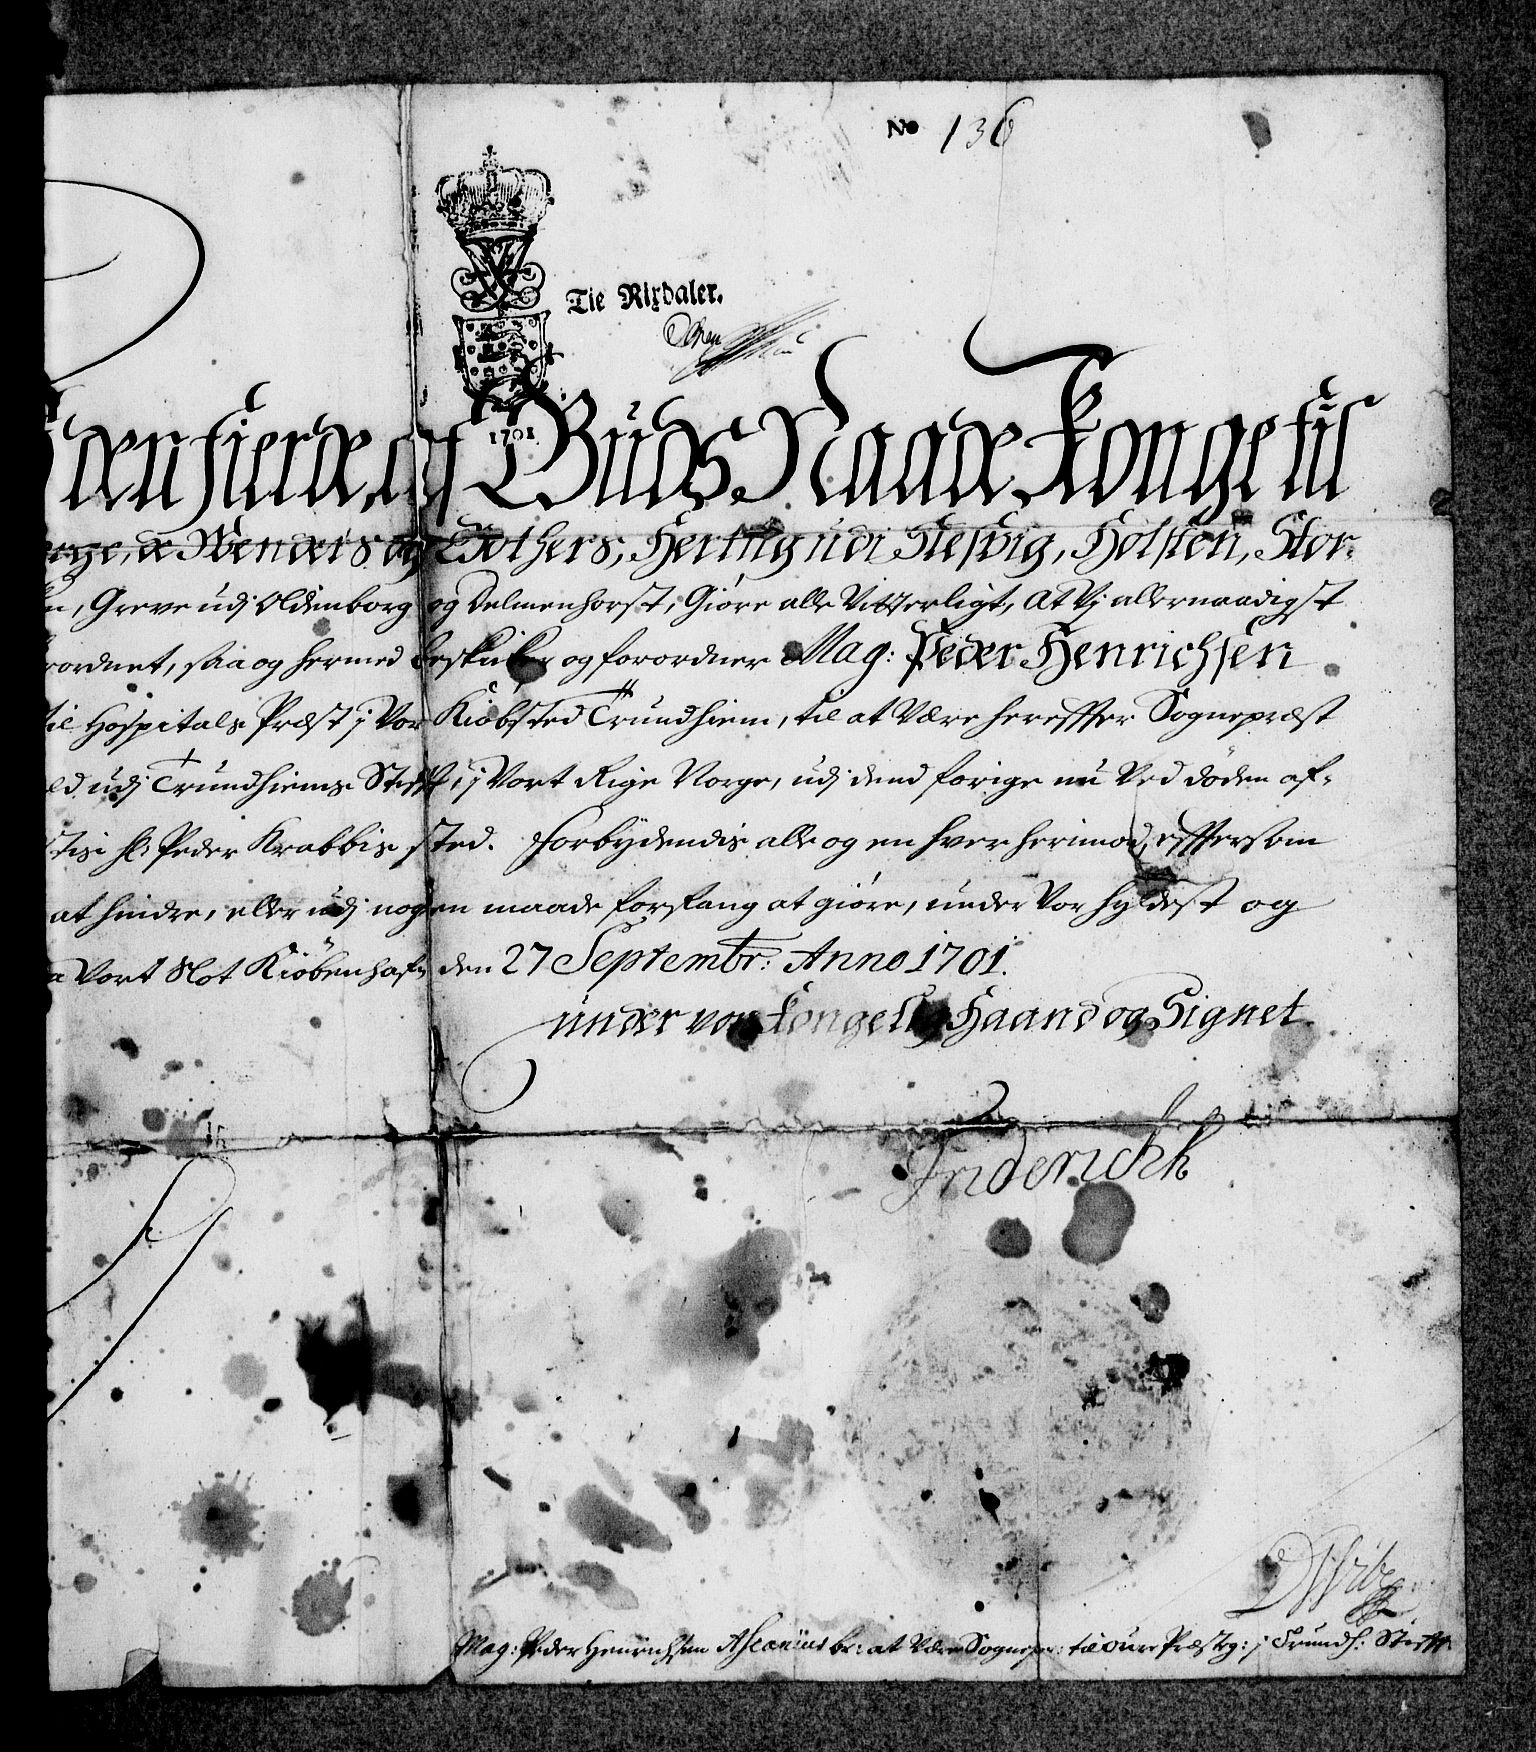 No 136
Tie Rixdaler.
1701.
den fierde, af Guds Naade Konge til
orge, de Wenders og Gothers, Hertug udi Slesvig, Holsten, Stor-
n, Greve udj Oldenborg og Delmenhorst, Giøre alle Vitterligt, At Vj allernaadigst
rordnet, saa og hermed beskicker og forordner Mag: Peder Henrichsen
til Hospitals Præst j Vor Kiøbsted Trundhiem, til at Være hereffter Sognepræst
ld udj Trundhiems Stifft ij Vort Rige Norge, udj dend forige nu Ved døden af-
Hr Peder Krabbis sted. Forbydendis alle og en hver herimod, efftersom
at hindre, eller udj nogen maade forfang at giøre, under Vor hyldest og
a Vort Slot Kiøbenhafn, den 27 Septembr: Anno 1701.
under vor Kongelig Haand og Signet.
Friderich
Mag: Peder Henrichsen Ascanius be: at Være Sognepr: til oure Præstg: j Trundh: Stifft.